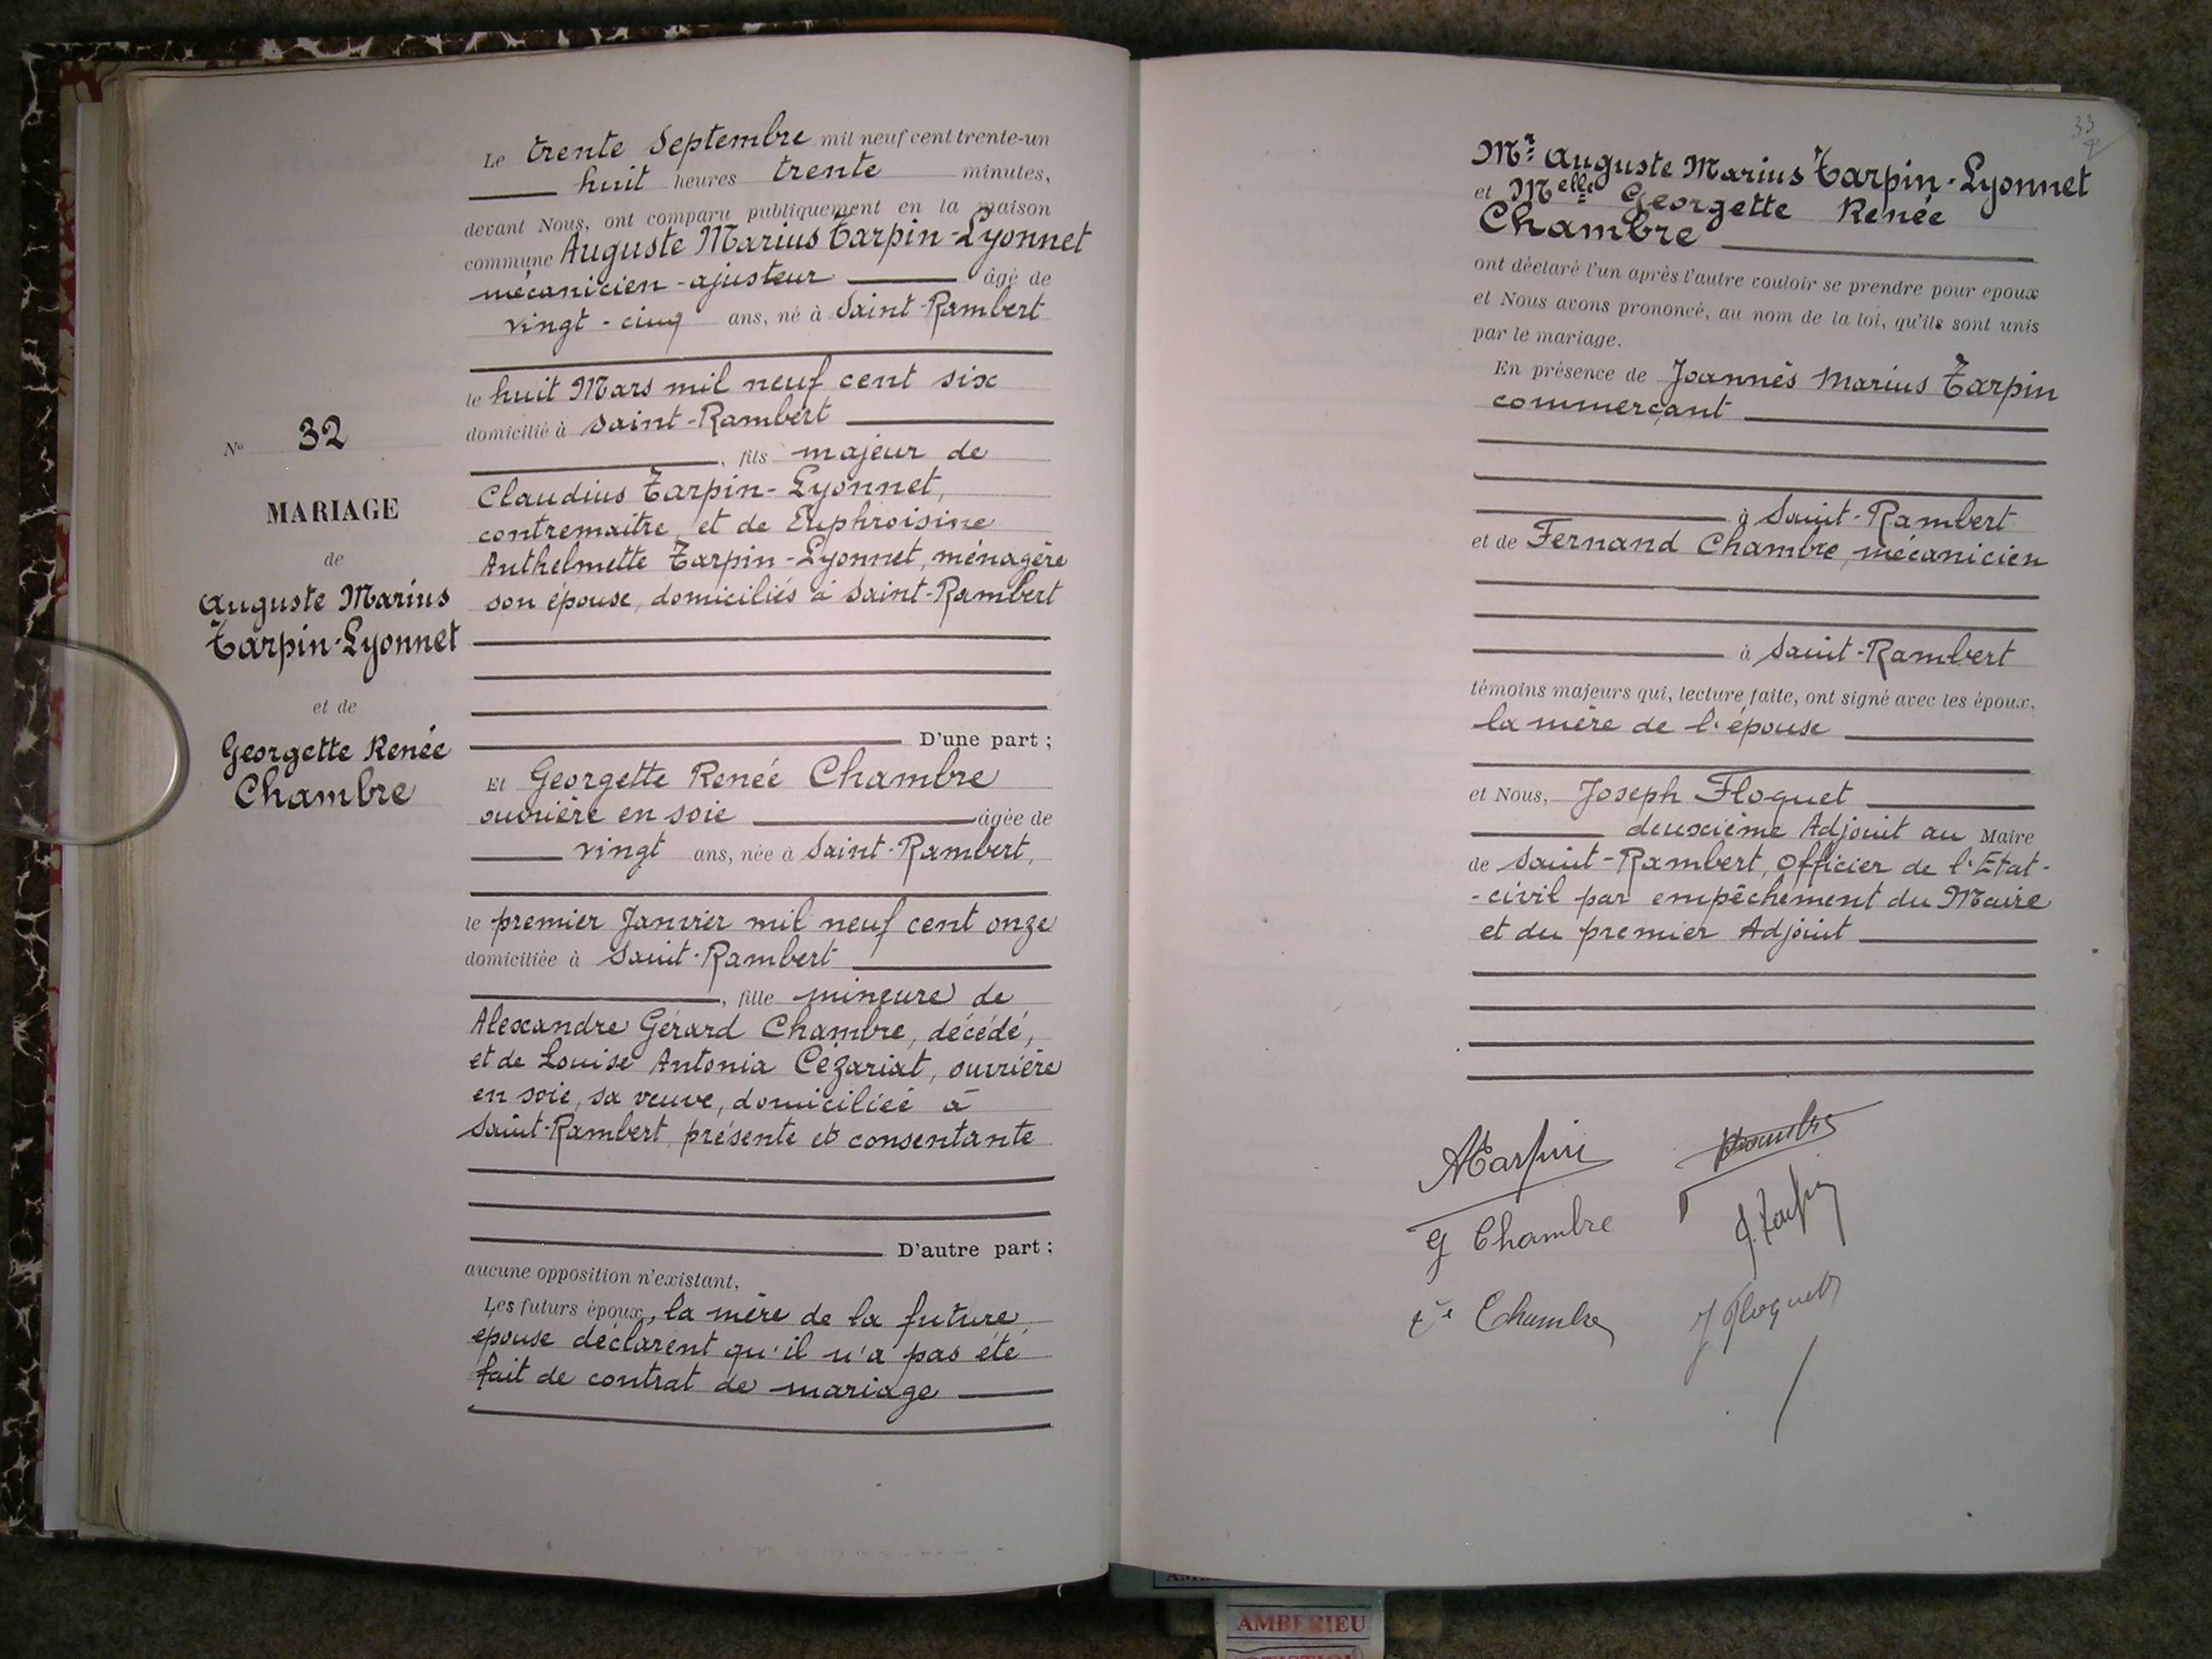 Le trente Septembre mil neuf cent trente-un
huit heures trente minutes,
devant Nous, ont comparu publiquement en la maison
commune Auguste Marius Tarpin-Lyonnet
mécanicien-ajusteur âgé de
vingt-cinq ans, né à Saint-Rambert
le huit Mars mil neuf cent six
domicilié à Saint-Rambert
, fils majeur de
Claudius Tarpin-Lyonnet,
contremaitre, et de Euphroisine
Anthelmette Tarpin-Lyonnet, ménagère
son épouse, domiciliés à Saint-Rambert
D'une part ;
Et Georgette Renée Chambre
ouvrière en soie âgée de
vingt ans, née à Saint-Rambert,
le premier Janvier mil neuf cent onze
domiciliée à Saint-Rambert
, fille mineure de
Alexandre Gérard Chambre, décédé,
et de Louise Antonia Cézariat, ouvrière
en soie, sa veuve, domiciliée à
Saint-Rambert, présente et consentante
D'autre part ;
aucune opposition n'existant,
Les futurs époux, la mère de la future
épouse déclarent qu'il n'a pas été
fait de contrat de mariage
No 32
MARIAGE
de
Auguste Marius
Tarpin-Lyonnet
et de
Georgette Renée
Chambre
33
Mr Auguste Marius Tarpin-Lyonnet
et Melle Georgette Renée
Chambre
ont déclaré l'un après l'autre vouloir se prendre pour epoux
et Nous avons prononcé, au nom de la loi, qu'ils sont unis
par le mariage.
En présence de Joannès Marius Tarpin
commerçant
à Saint-Rambert
et de Fernand Chambre, mécanicien
à Saint-Rambert
témoins majeurs qui, lecture faite, ont signé avec les époux,
la mère de l'épouse
et Nous, Joseph Floquet
deuxième Adjoint au Maire
de Saint-Rambert, Officier de l'Etat-
-civil par empêchement du Maire
et du premier Adjoint
ATarpin
Chambre
G Chambre
J. Tarpin
Ve Chambre
J Floquet
AMBERIEU